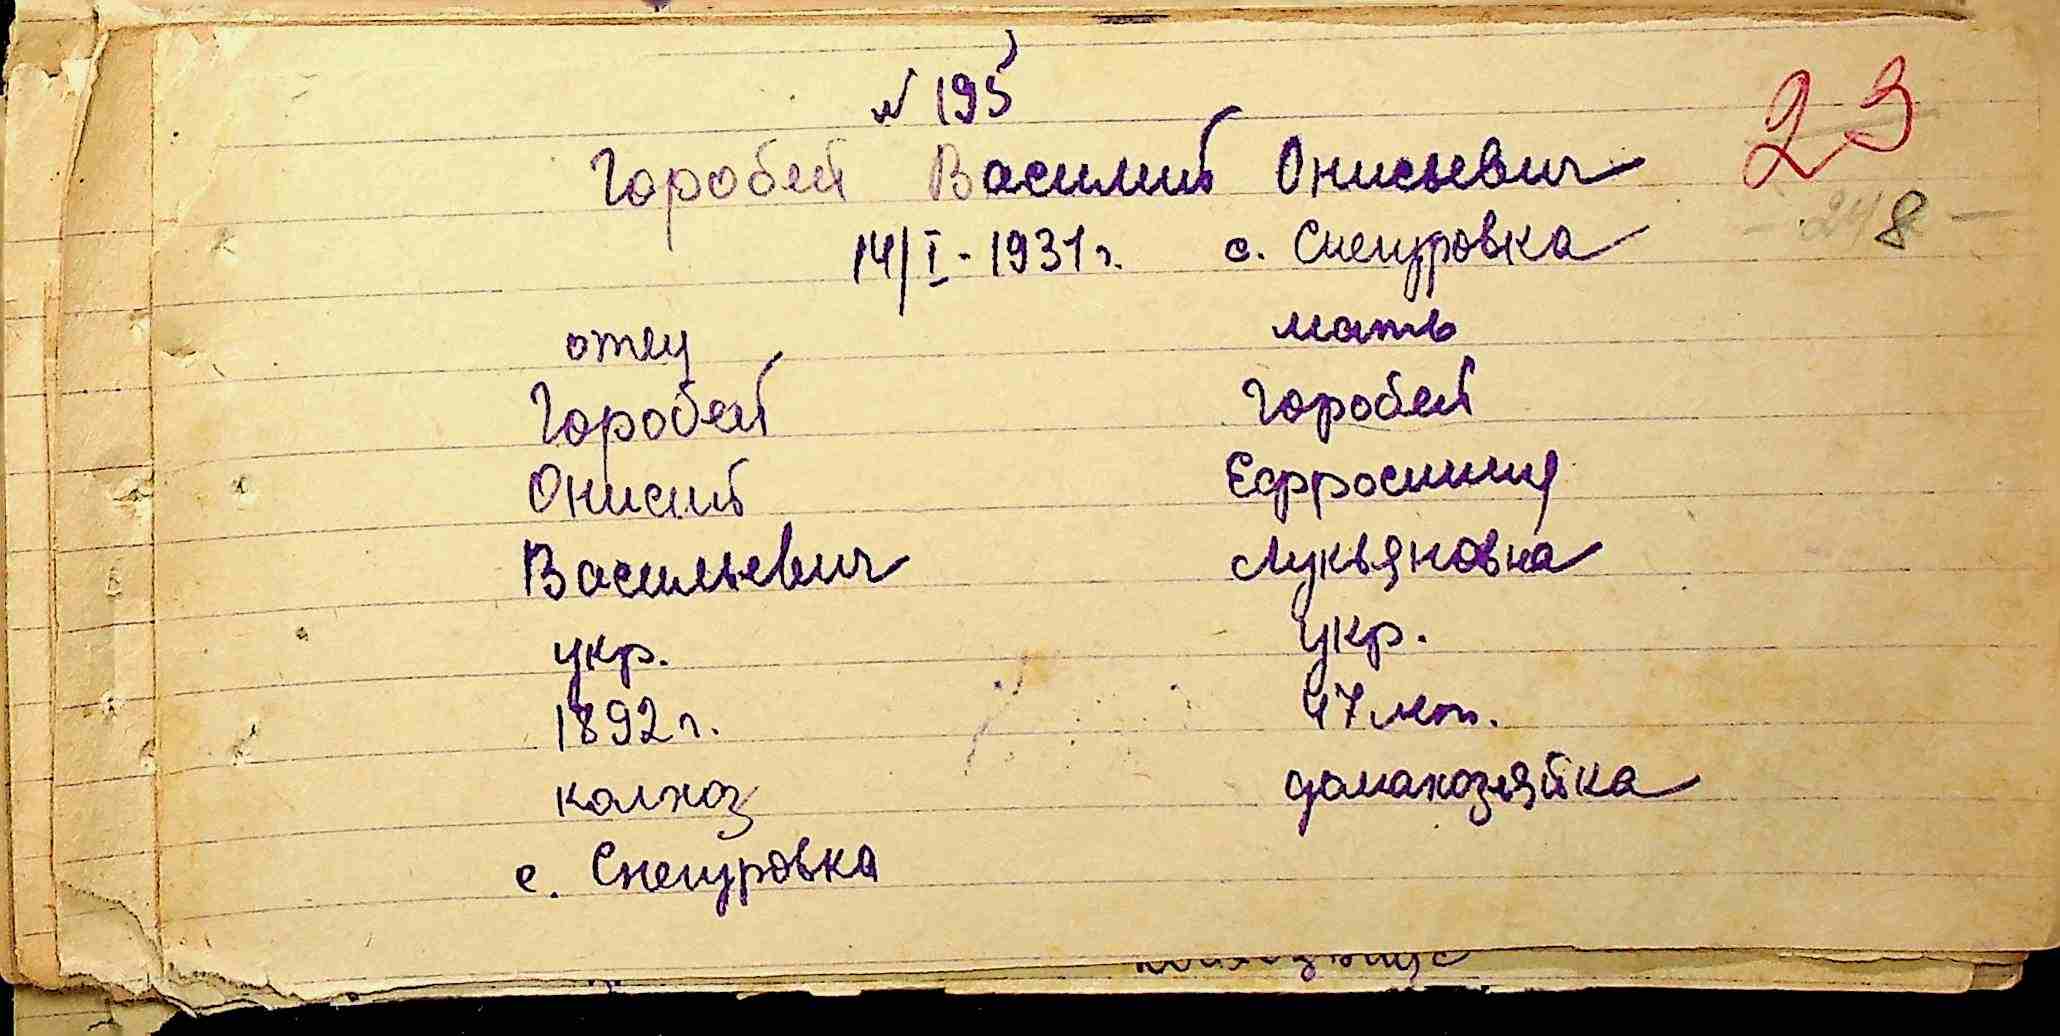 № 195
23
Горобей Василий Онисьевич
8
14/I - 1931 г. с. Снегуровка
отец мать
Горобей Горобей
Онисий Ефросиния
Васильевич Лукьяновна
укр. укр.
1892 г. 47 лет.
колхоз домахозяйка
с. Снегуровка